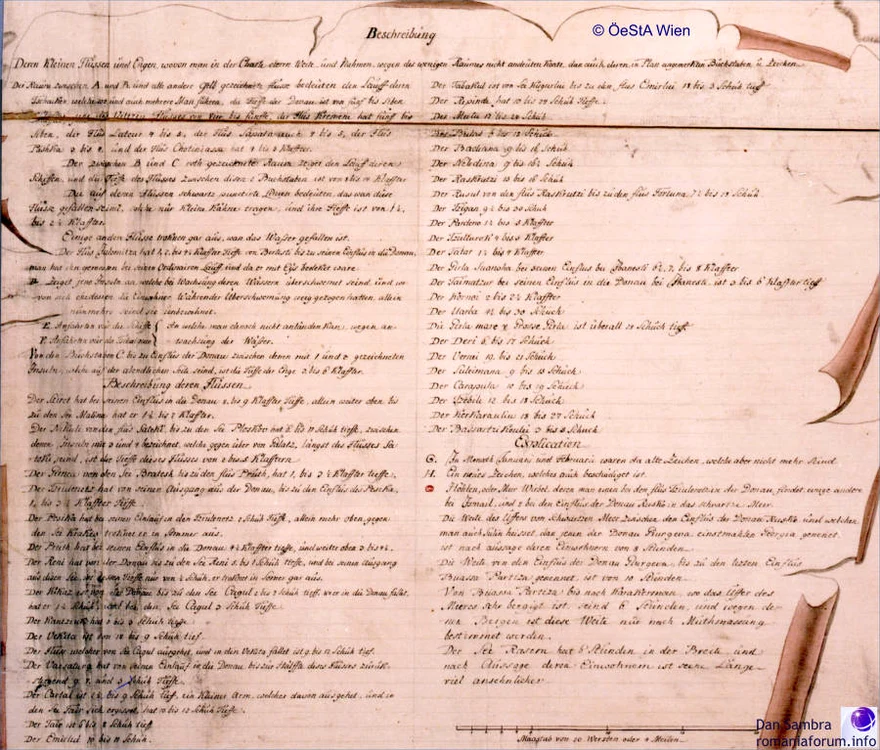 © ÖeStA Wien
Beschreibung
Deren Kleinen Flüssen und Orgen, wovon man in der Charte deren Weite und Nahmen, wegen des wenigen Raumes nicht andeüten konte, dan auch deren in Plan angemerkten Buchstaben u. Zeichen.
Der Raum zwischen A und B und alle andere gelb gezeichnete flüsse bedeüten den Lauff deren
welche und auch mehrere Man führen, die Tieffe der Donau, ist von fünf bis siben
bis fünfte, der Flus Kremeni hat fünf bis
siben, der Flus Lateur 4 bis der Flus 4 bis 5, der Flus
2 bis und der Flus Chotiniassa hat 4 bis 5 Klaffter.
Der zwischen B und C roth gezeichnete Raum zeiget den Lauff deren
Schiffen, und die Tieffe des Flusses zwischen disen 2 Buchstaben ist von bis 10 Klaffter
Die auf deren Flüssen schwartz punctirte Linien bedeüten, das wan dise
Flüsse gefallen seind, solche nur Kleine Kähne tragen, und ihre Tieffe ist von 1¼,
bis 2½ Klaffter.
Einige andere Flüsse troknen gar aus, wan das Wasser gefallen ist.
Der Flus Jalomitza hat bis Klaffter Tieffe, von bis zu seinen Einflus in die Donau,
man hat ihn genomen bei seinen Ordinairen Lauff, und da er mit Eys bedeket ware.
D. Zeiget jene Insuln an, welche bei Wachsung deren Wässern überschwemet seind, und
von sich die Einwohner Währender Überschwemung weg gezogen hatten, allein
nunmehro seind sie unbewohnet.
E. Anfuhrten vor die Schiffe { An welche man danoch nicht anländen Kan, wegen an-
F. Anfuhrten vor die { wachsung der Wässer.
Von den Buchstaben C. bis zu Einflus der Donau zwischen denen mit 1 und 2 gezeichneten
Insuln, welche auf der abendlichen Seite seind, ist die Tieffe der Enge 2 bis 6 Klaffter.
Beschreibung deren Flüssen
Der Siret hat bei seinen Einflus in die Donau 2 bis 9 Klaffter Tieffe, allein weiter oben bis
zu den See Malina hat er 1½ bis 2 Klaffter.
Der von den flus bis zu den See hat 6 bis 11 Schüh tieff, zwischen
denen Insuln mit 3 und 4 bezeichnet, welche gegen über von Galatz, längst des Flusses
seind, ist die Tieffe dieses Flusses von 2 bis 5 Klafftern.
Der von den See Bratesk bis zu den flus Prüth, hat 1, bis 3½ Klaffter tieffe.
Der hat von seinen Ausgang aus der Donau, bis zu den Einflus des Poska,
1, bis 3½ Klaffter Tieffe.
Der Poska hat bei seinen Einlauf in den 2 Schüh Tieff, allein mehr oben, gegen
den See troknet er in Sommer aus.
Der Prüth hat bei seinen Einflus in die Donau 4½ Klaffter tieffe, und weiter oben 3 bis 4¼.
Der Reni hat von der Donau bis zu den See Reni 5, bis 8 Schüh tieffe, und bei seinen Ausgang
aus diser See, ist dessen Tieffe nur von ½ Schüh, er troknet in Sommer gar aus.
Der ist von der Donau bis zu den See Cagul 2 bis 7 Schüh tieff, wo er in die Donau fallet,
hat er Schüh, und bei den See Cagul 3 Schüh Tieffe.
Der hat 2 bis 3 Schüh tieffe.
Der Vekita ist von 12 bis 9 Schüh tief.
Der Flus welcher von See Cagul ausgehet, und in den Vekita fallet ist 9. bis 11 Schüh tief.
Der hat von seinen Einlauf in die Donau, bis zur Hülffte dises Flusses zurük-
9, 7, und 5 Schüh Tieffe.
Der Cartal ist bis 9 Schüh tief, ein Kleiner Arm, welcher davon ausgehet, und in
den See sich ergiesset, hat 10 bis 12 Schüh Tieffe.
Der ist 6 bis 8 Schüh tieff.
Der 10 bis 11 Schüh.
Der Tabakul ist von See bis zu den flus Emirlui 12 bis 3 Schüh tieff
Der Repinda hat 10 bis 20 Schüh Tieffe.
Der 17 bis 20 Schüh
Der bis 12 Schüh
Der 9½ bis 16 Schüh
Der 9 bis 16½ Schüh
Der Raskrutzi 10 bis 16 Schüh
Der Rusul von den flus Raskrutzi bis zu den flus Fortuna 7½ bis 11 Schüh.
Der Zigan 9½ bis 20 Schüh
Der Pardeno 1½ bis 5 Klaffter
Der 4 bis 6 Klaffter
Der 1½ bis 4 Klaffter
Der Girla bei seinen Einflus bei 6½, 7, bis 8 Klaffter
Der bei seinen Einflus in die Donau bei ist 3 bis 6 Klaffter tieff
Der 2 bis 2½ Klaffter
Der 12 bis 20 Schuch
Die Girla mare / Grosse Girla ist überall 21 Schüch tieff
Der Deri 6 bis 17 Schüch
Der 19 bis 21 Schüch
Der Suleimana 9 bis 10 Schüh
Der Carasulu 10 bis 19 Schüch
Der 12 bis 18 Schüch
Der Kerkaraului 18 bis 27 Schüch
Der 3 bis 8 Schuch
Explication
G. In Monath Januarii und Februarii waren da alte Zeichen, welche aber nicht mehr seind.
H. Ein neues Zeichen, welches auch beschädiget ist.
Höhlen, oder Meer Wirbel, deren man einen bei dem flus in der Donau, findet, einige andere
bei Ismail, und 2 bei den Einflus der Donau in das schwartze Meer.
Die Weite des Uffers von Schwartzen Meer zwischen den Einflus der Donau und welchen
man auch Sulin heisset, dan jenen der Donau Gurgeva, einstmahlen Georgia genenet,
ist nach aussage deren Einwohnern von 8 Stunden.
Die Weite von den Einflus der Donau Gurgeva bis zu den lezten Einflus
Buassa Partiza genenet, ist von 10 Stunden.
Von Buassa Partiza, bis nach wo das Uffer des
Meeres sehr bergigt ist, seind 6 Stunden, und wegen de-
nen Bergen ist diese Weite nur nach Muthmassung
bestimmet worden.
Der See Rasein hat 6 Stunden in der Breite und
nach Aussage deren Einwohnern ist seine Länge
viel ansehnlicher.
Maasstab von 20 Wersten oder 4 Meilen.
Dan Sambra
romaniaforum.info